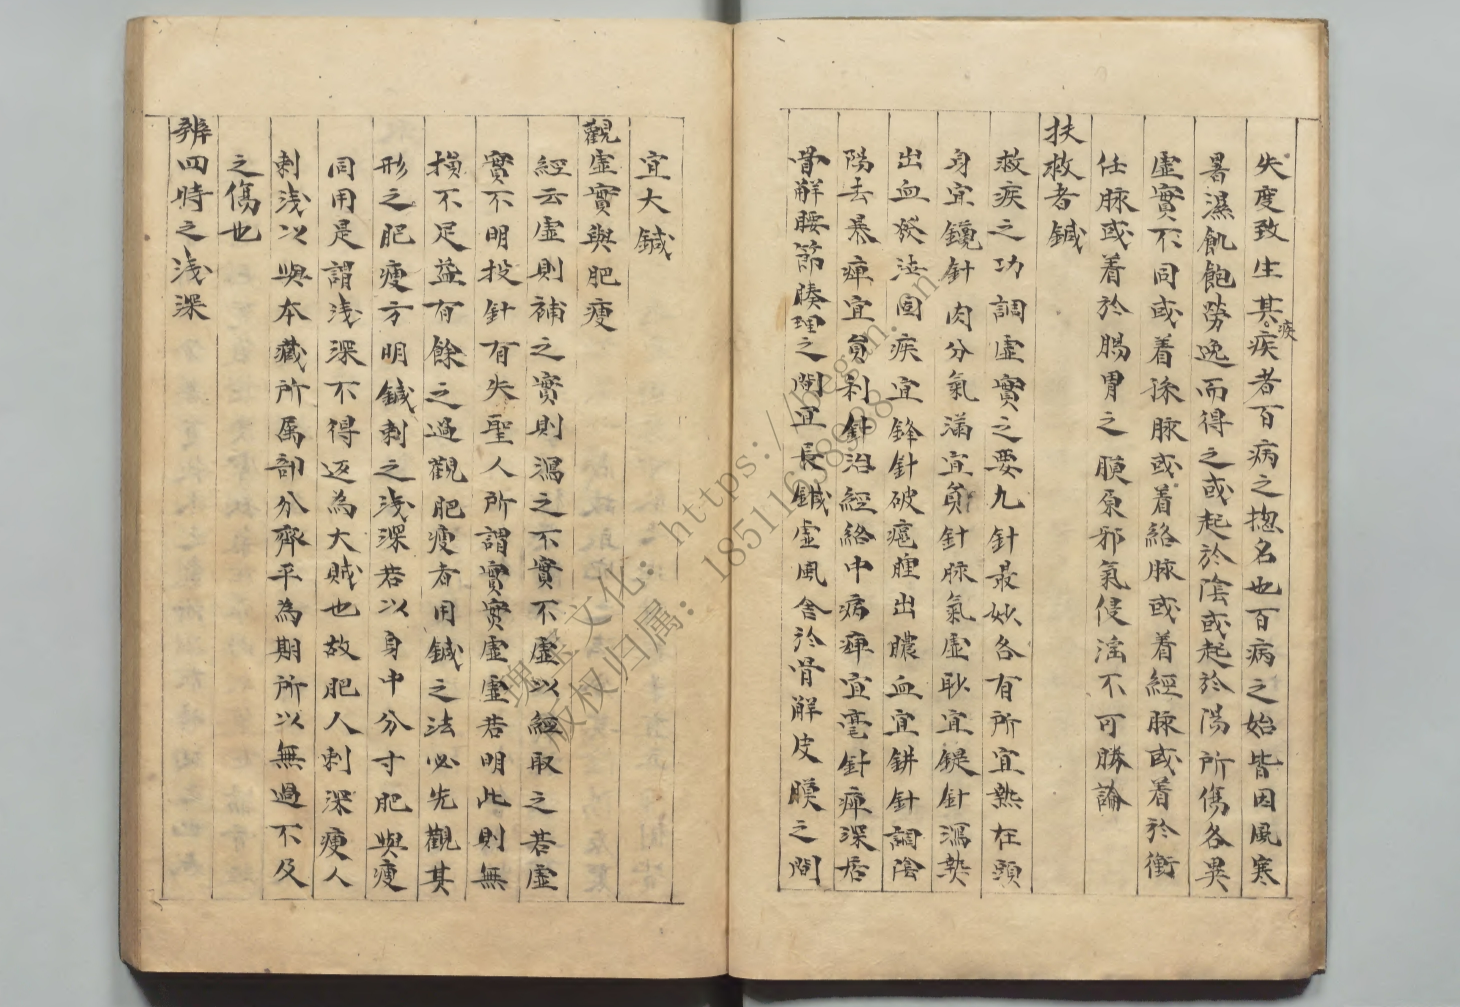 失度致生其疾者百病之揔名也百病之始皆因風寒
疾
暑濕飢飽勞逸而得之或起於陰或起於陽所傷各異
虛實不同或着孫脉或着絡脉或着經脉或着於衝
任脉或着於腸胃之膜原邪氣侵淫不可勝論
扶救者鍼
救疾之功調虛實之要九針最妙各有所宜熱在頭
身宜鑱針肉分氣滿宜員針脉氣虛耿宜鍉針瀉熱
出血發泄固疾宜鋒針破癰腫出膿血宜鈹針調陰
陽去暴痺宜員利針治經絡中病痺宜毫針痺深居
骨觧腰節膝理之間宜長鍼虛風舍於骨觧皮膜之間
宜大鍼
觀虛實與肥瘦
經云虛則補之實則瀉之不實不虛以經取之若虛
實不明投針有失聖人所謂實實虛虛若明此則無
損不足益有餘之過觀肥瘦者用鍼之法必先觀其
形之肥瘦方明鍼刺之浅深若以身中分寸肥與瘦
同用是謂浅深不得返為大賊也故肥人刺深瘦人
刺浅以與本藏所属部分齊平為期所以無過不及
之傷也
辨四時之浅深
埋金文化: https://hegtn.cn
版权归属: 18511658988